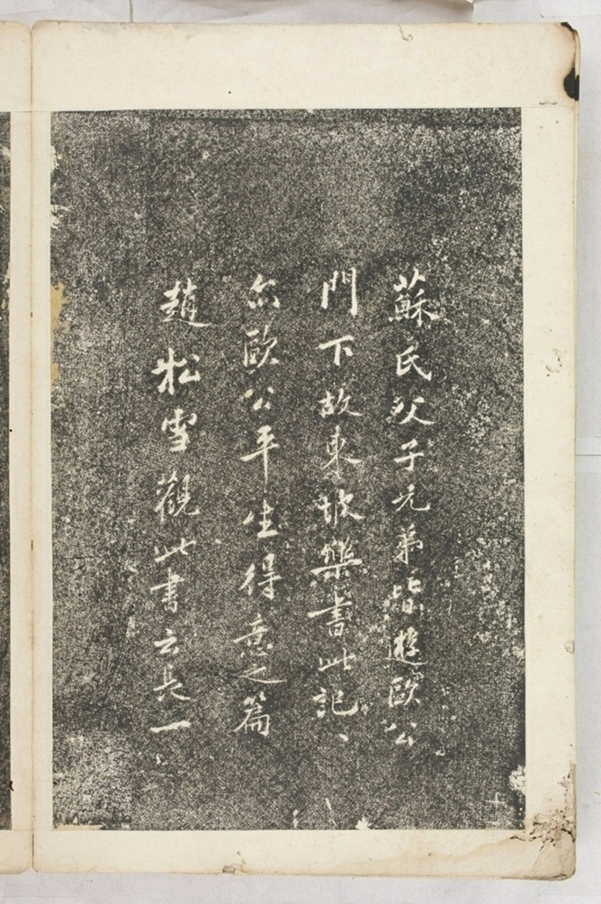 蘇氏父子兄弟皆遊歐公
門下故東坡樂書此記、
尒歐公平生得意之篇
趙松雪觀此書云長一